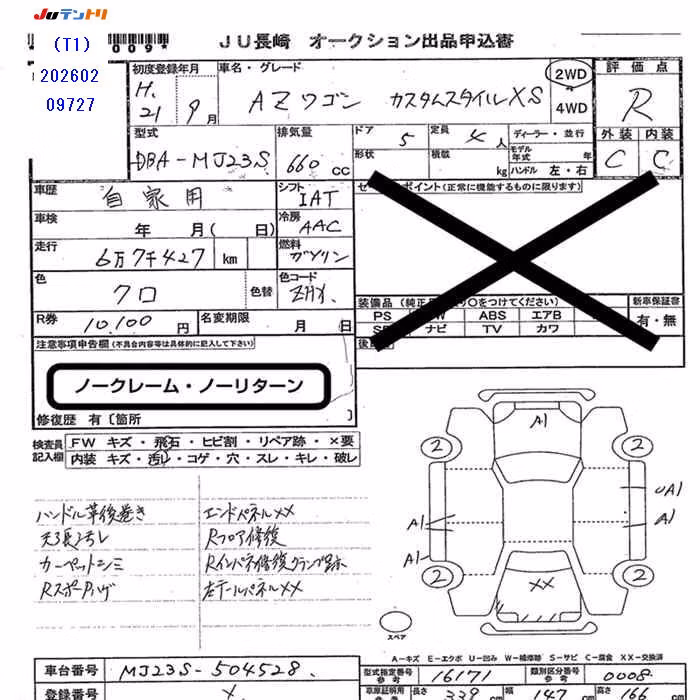 JUテントリ
(T1)
202602
09727
009*
JU長崎 オークション出品申込書
初度登録年月
H.
21 9月
車名・グレード
AZワゴン カスタムスタイルXS
2WD
4WD
評価点
R
外装 内装
C C
型式
DBA-MJ23S
排気量
660 cc
ドア 5
定員 4人
ディーラー・並行
形状
積載 kg
モデル年式 年
ハンドル 左・右
車歴
自家用
シフト
IAT
車検
年 月( 日)
冷房
AAC
走行
6万7千427 km
燃料
ガソリン
色
クロ
色替
色コード
ZHY.
R券
10,100円
名変期限
月 日
ポイント(正常に機能するものに限ります)
装備品
○をつけてください)
新車保証書
有・無
PS ABS エアB
ナビ TV カワ
注意事項申告欄(不具合内容等は具体的に記入して下さい)
ノークレーム・ノーリターン
修復歴 有〔箇所
検査員記入欄
FW キズ・飛石・ヒビ割・リペア跡・×要
内装 キズ・汚レ・コゲ・穴・スレ・キレ・破レ
ハンドル革後巻き
天張汚レ
カーペットシミ
Rスポーハゲ
エンドパネル××
Rフロア修復
Rインパネ修復クランプ跡
左テールパネル××
A1
2 2
UA1
A1 A1
A1
2 2
××
スペア
A-キズ E-エクボ U-凹み W-補修跡 S-サビ C-腐食 XX-交換済
車台番号
MJ23S-504528.
型式指定番号参考
16171
類別区分番号参考
0008
登録番号
×
車庫証明用参考
長さ 339 cm
幅 147 cm
高さ 166 cm